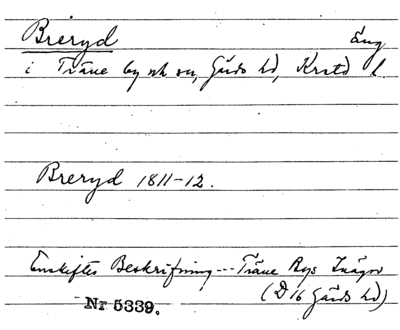 Breryd Äng
i Träne by o sn, Gärds hd, Krstd l.
Breryd 1811-12.
Enskiftes Beskrifning --- Träne Bys Inägor
(D 16 Gärds hd)
Nr 5339.